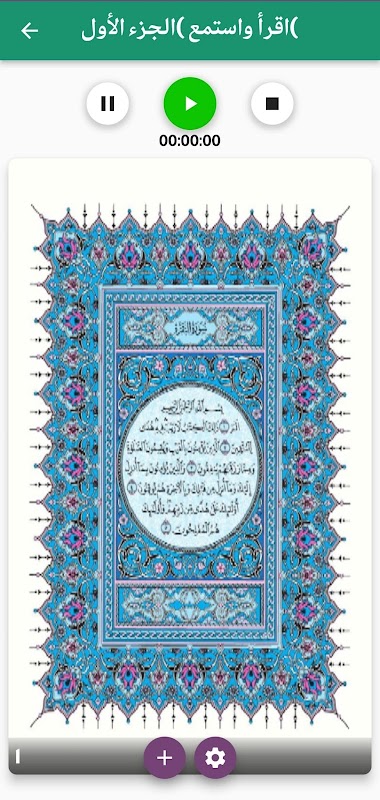 (اقرأ واستمع (الجزء الأول
00:00:00
سورة البقرة
بسم الله الرحمن الرحيم
الم ١ ذلك الكتاب لا ريب فيه هدى
للمتقين ٢ الذين يؤمنون بالغيب ويقيمون الصلوة
ومما رزقنهم ينفقون ٣ والذين يؤمنون بما أنزل
إليك وما أنزل من قبلك وبالآخرة هم يوقنون ٤
أولئك على هدى من ربهم وأولئك
هم المفلحون ٥